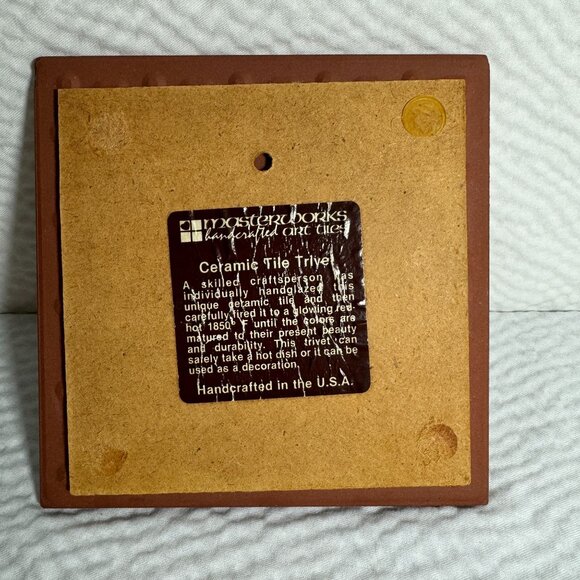 masterworks
handcrafted art tiles
Ceramic Tile Trivet
A skilled craftsperson has
individually handglazed this
unique ceramic tile and then
carefully fired it to a glowing red-
hot 1850° F until the colors are
matured to their present beauty
and durability. This trivet can
safely take a hot dish or it can be
used as a decoration.
Handcrafted in the U.S.A.